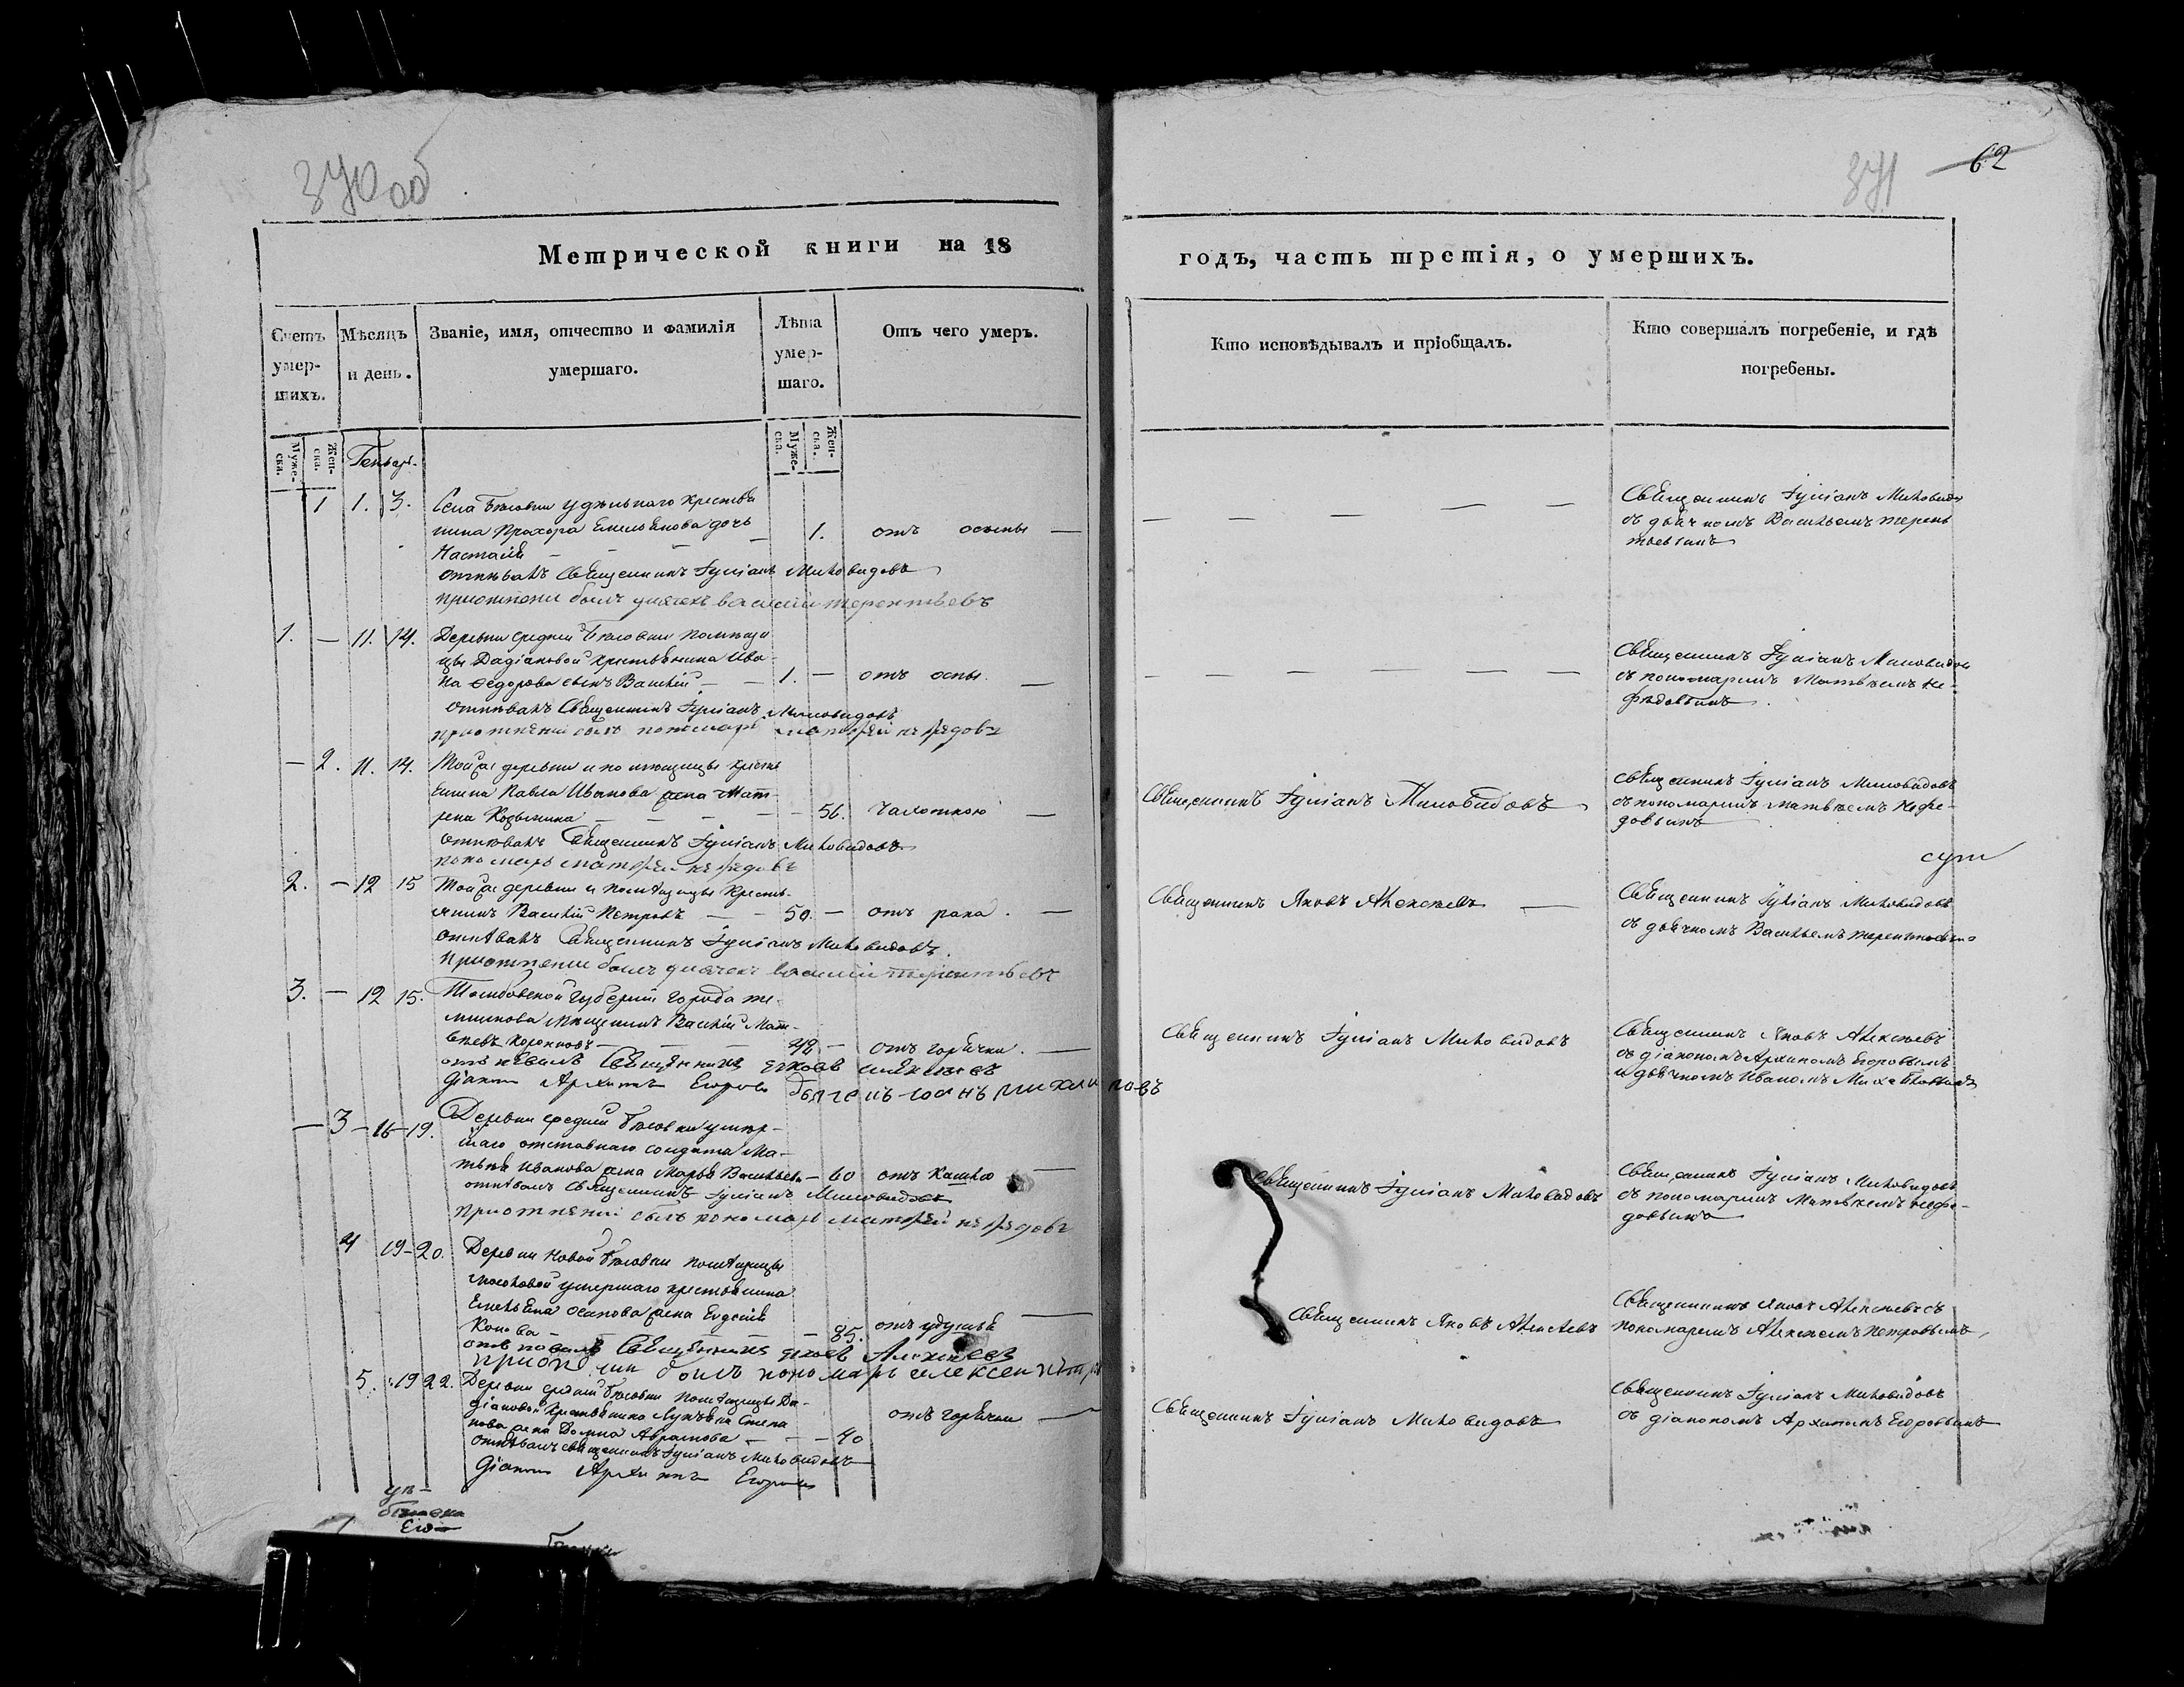 370 об
371
62
Метрической книги на 18
годъ, часть третія, о умершихъ.
Счетъ умер-шихъ.
Мѣсяцъ и день.
Званіе, имя, отчество и фамилія умершаго.
Лѣта умер-шаго.
Отъ чего умеръ.
Кто исповѣдывалъ и пріобщалъ.
Кто совершалъ погребеніе, и гдѣ погребены.
Муже-ска.
Жен-ска.
Генварь.
Муже-ска.
Жен-ска.
1 1. 3. Села Удѣльнаго крестья
нина Прохора Емельянова дочь
Настасія — — — 1. отъ оспы —
отпѣвалъ Священникъ Іуліанъ Миловидовъ
причотнени былъ дячекъ васили терентьевъ
Священникъ Іуліанъ Миловидо
съ дьячкомъ Васильемъ терень
тьевымъ
1. — 11. 14. Деревни средней помѣщи
цы Дадіановой крестьянина Ива-
на Федорова сынъ Василій — — 1. — отъ оспы. —
отпѣвалъ Священникъ Іуліанъ Миловидовъ
былъ пономарь матфей нефедовъ
Священникъ Іуліанъ Миловидов
съ пономаремъ Матвѣемъ Не-
федовымъ
— 2. 11. 14. Той же деревни и помѣщицы крестья
нина Павла Иванова жена Мат-
рена Козьмина — — — 56. Чахоткою —
отпѣвалъ Священникъ Іуліанъ Миловидовъ
пономарь матфей нефедовъ
Священникъ Іуліанъ Миловидовъ
Священникъ Іуліанъ Миловидовъ
съ пономаремъ матвѣемъ Нефе-
довымъ
2. — 12 15 Той же деревни и помѣщицы Кресть-
янинъ Василій Петровъ — — 50. — отъ рака. —
отпѣвалъ Священникъ Іуліанъ Миловидовъ.
былъ дячекъ василии терентьевъ
Священникъ Яковъ Алексѣевъ —
Священникъ Іуліанъ Миловидовъ
съ дьячкомъ Васильемъ терентьевымъ
3. — 12 15. Тамбовской губерніи города
мѣщанинъ Василій Мат-
вѣевъ — — — 42 — отъ горячки. —
отпѣвалъ Священникъ яковъ алексѣевъ
діаконъ Архипъ Егоровъ
Священникъ Іуліанъ Миловидовъ
Священникъ Яковъ Алексѣевъ
съ діакономъ Архипомъ Егоровымъ
и дьячкомъ Иваномъ Михайловымъ
— 3 — 16 — 19. Деревни средней умер-
шаго отставнаго солдата Ма-
твѣя Иванова жена Марья Васильева — 60 отъ кашлю —
отпѣвалъ священникъ Іуліанъ Миловидовъ
былъ пономарь матфей нефедовъ
Священникъ Іуліанъ Миловидовъ
Священникъ Іуліанъ Миловидовъ
съ пономаремъ Матвѣемъ Нефе-
довымъ
4 19 — 20. Деревни Новой помѣщицы
умершаго крестьянина
Емельяна Осипова жена Евдокія
— — — 85. отъ удушья —
Священникъ яковъ Алексѣевъ
былъ пономарь алексеи
Священникъ Яковъ Алексѣевъ
Священникъ Яковъ Алексѣевъ съ
пономаремъ Алексѣемъ Петровымъ
5. 19 22. Деревни средней помѣщицы Да-
діановой Крестьянина Лукьяна Степа
нова жена Домна Абрамова — — 40 отъ горячки —
отпѣвалъ священникъ Іуліанъ Миловидовъ
Діаконъ Архипъ Егоровъ
Священникъ Іуліанъ Миловидовъ
Священникъ Іуліанъ Миловидовъ
съ діакономъ Архипомъ Егоровымъ